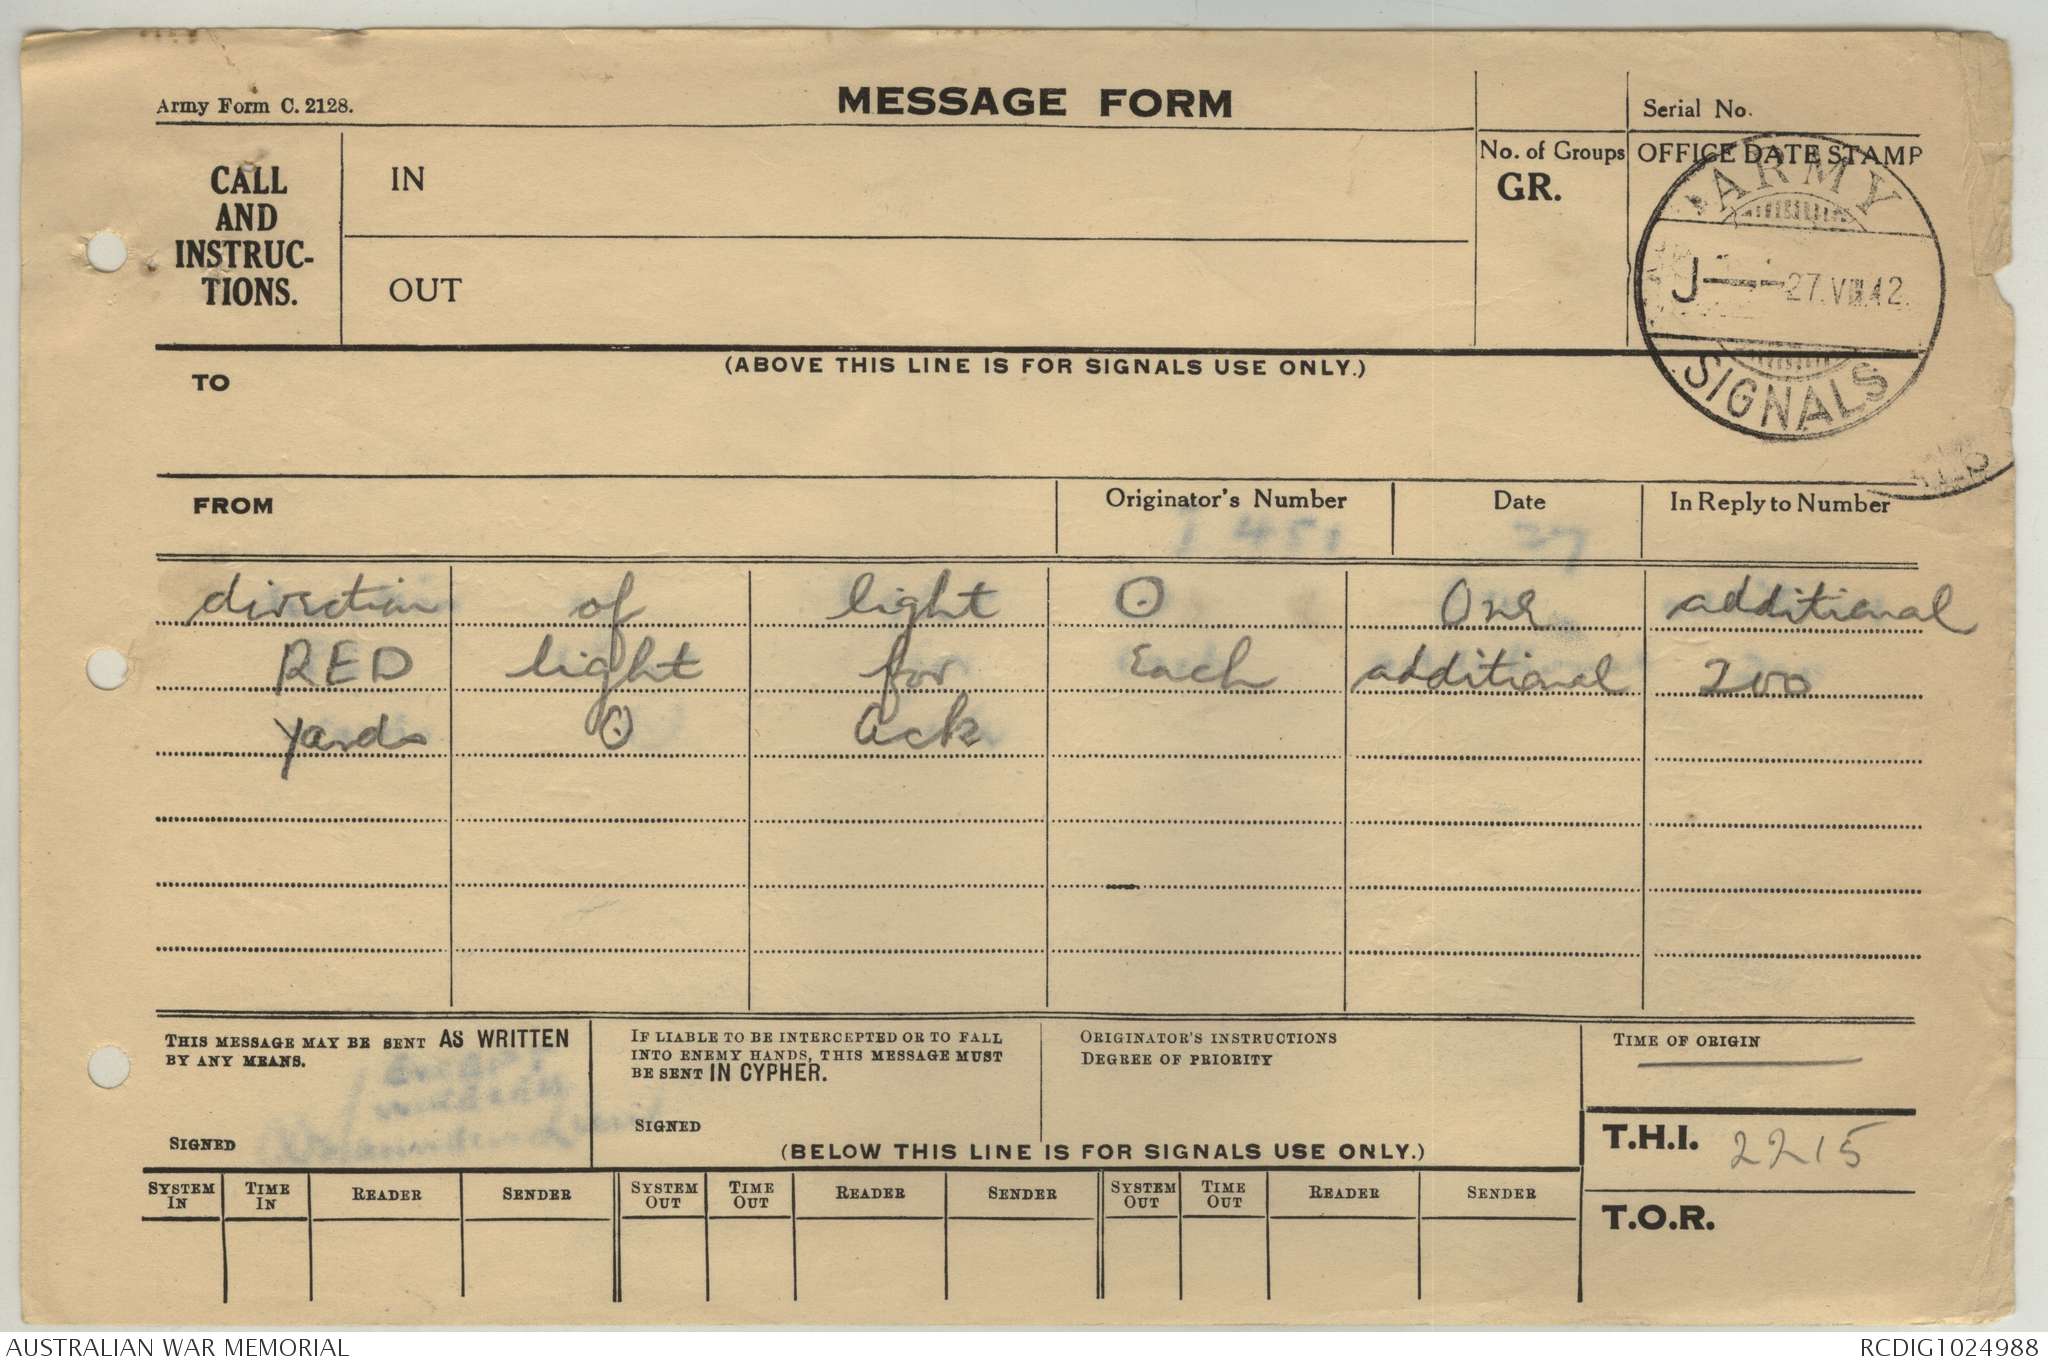 Army Form C. 2128.
MESSAGE FORM
Serial No.
CALL
AND
INSTRUC-
TIONS.
IN
OUT
No. of Groups
GR.
OFFICE DATE STAMP
ARMY
J 27.VIII.42
SIGNALS
(ABOVE THIS LINE IS FOR SIGNALS USE ONLY.)
TO
FROM
Originator's Number
Date
In Reply to Number
451
27
direction of light O One additional
RED light for Each additional 200
yards O Ack
THIS MESSAGE MAY BE SENT AS WRITTEN
BY ANY MEANS.
SIGNED
IF LIABLE TO BE INTERCEPTED OR TO FALL
INTO ENEMY HANDS, THIS MESSAGE MUST
BE SENT IN CYPHER.
SIGNED
ORIGINATOR'S INSTRUCTIONS
DEGREE OF PRIORITY
TIME OF ORIGIN
(BELOW THIS LINE IS FOR SIGNALS USE ONLY.)
T.H.I. 2215
T.O.R.
SYSTEM IN
TIME IN
READER
SENDER
SYSTEM OUT
TIME OUT
READER
SENDER
SYSTEM OUT
TIME OUT
READER
SENDER
AUSTRALIAN WAR MEMORIAL
RCDIG1024988